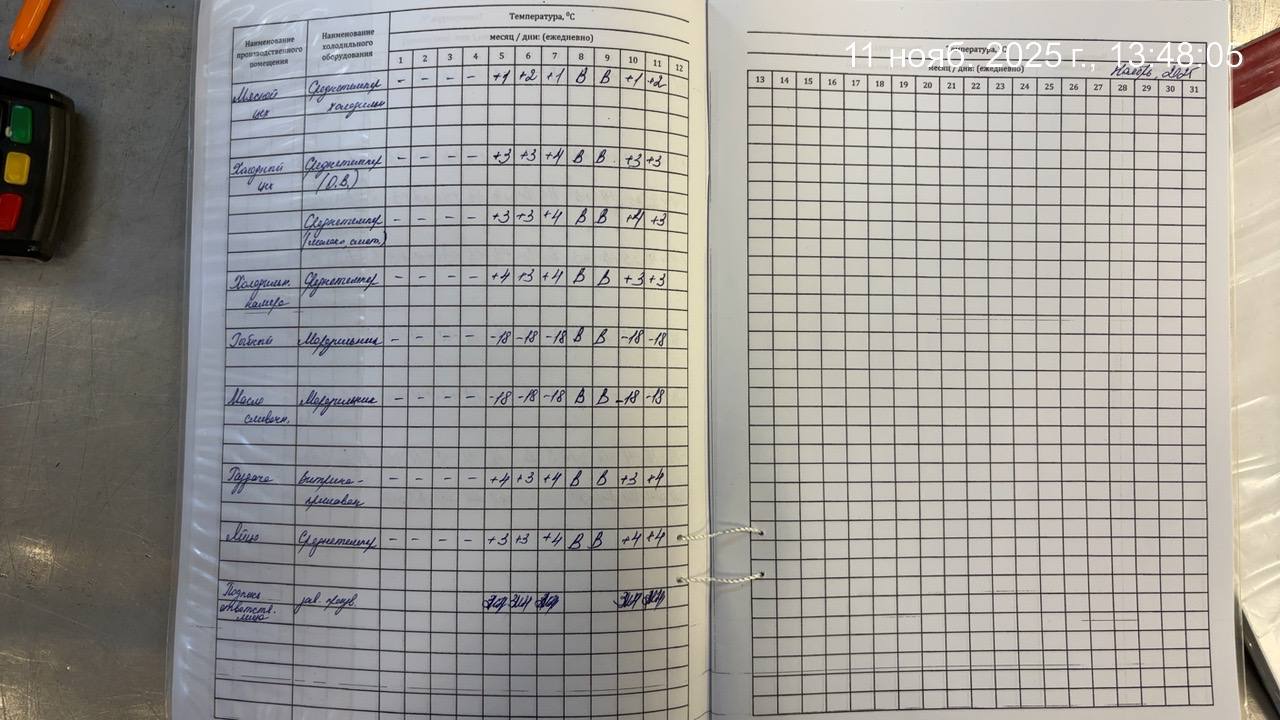 Температура, ⁰С
Наименование производственного помещения
Наименование холодильного оборудования
месяц / дни: (ежедневно)
1 2 3 4 5 6 7 8 9 10 11 12
Мясной Среднетемпер - - - - +1 +2 +1 В В +1 +2
цех холодильн
Холодный Среднетемпер - - - - +3 +3 +4 В В +3 +3
цех (О.В.)
Среднетемпер - - - - +3 +3 +4 В В +4 +3
(молоко, смет.)
Холодильн. Среднетемпер - - - - +4 +3 +4 В В +3 +3
камера
Морозильник - - - - -18 -18 -18 В В -18 -18
Масло Морозильник - - - - -18 -18 -18 В В -18 -18
сливочн.
Раздача Витрина- - - - - +4 +3 +4 В В +3 +4
прилавок
Яйцо Среднетемпер - - - - +3 +3 +4 В В +4 +4
Подпись зав. произв.
ответств.
лица
11 нояб. 2025 г., 13:48:05
Температура, ⁰С
месяц / дни: (ежедневно) Ноябрь, 2025
13 14 15 16 17 18 19 20 21 22 23 24 25 26 27 28 29 30 31